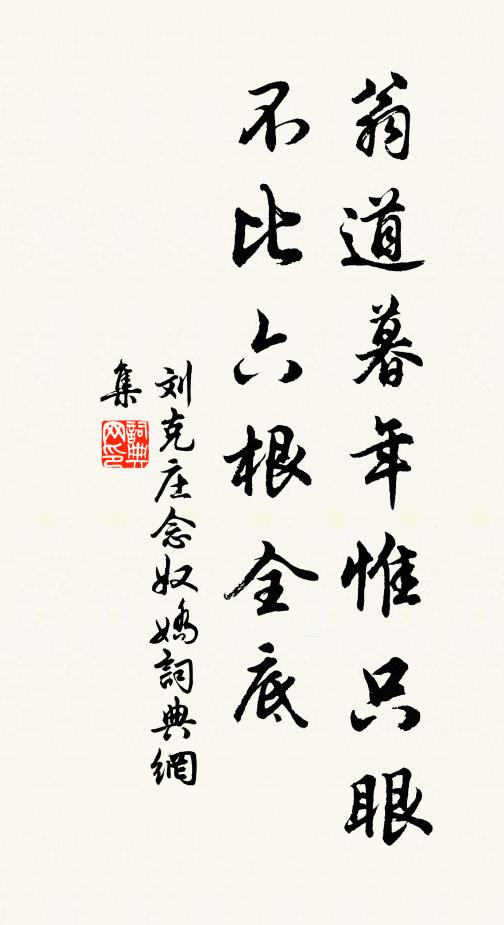 翁道暮年惟只眼
不比六根全底
刘克庄念奴嬌詞典網
集
詞典网印